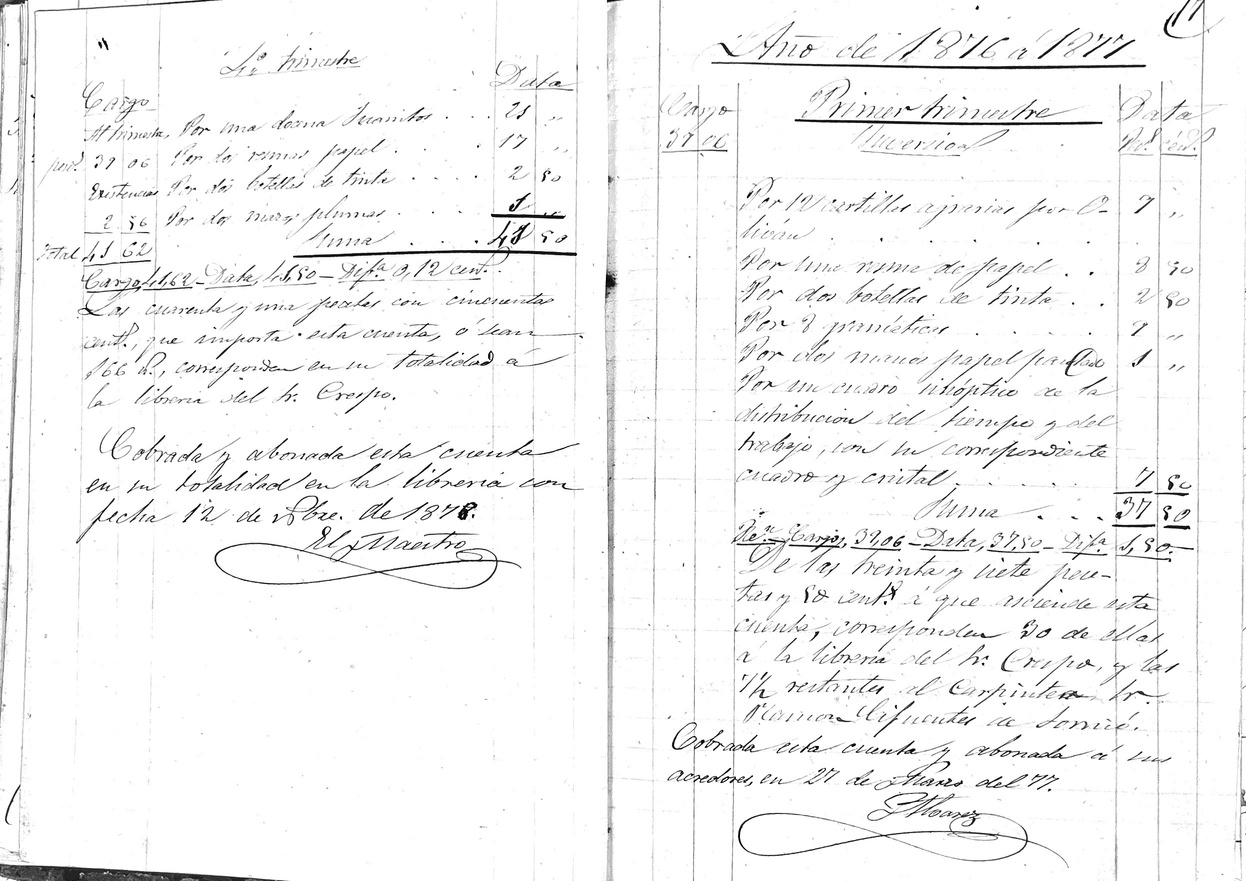 "
4º trimestre
Cargo Data
Al trimestre, Por una docena Juanitos . . . 21 "
pesˢ 39 06 Por dos resmas papel . . . 17 "
Existencias Por dos botellas de tinta . . . . 2 50
2 56 Por dos manos plumas . . . . 1 "
Total 41 62 Suma . . . . 41 50
Cargo, 41,62 - Data, 41,50 - Difª 0,12 centˢ
Las cuarenta y una pesetas con cincuenta
centˢ, que importa esta cuenta, ó sean
166 rˢ, corresponden en su totalidad á
la libreria del Sr. Crespo.
Cobrada y abonada esta cuenta
en su totalidad en la libreria con
fecha 12 de 8bre. de 1878.
El Maestro
17
Año de 1876 á 1877
Cargo Primer trimestre Data
39 06 Inversion Pˢ centˢ
Por 12 cartillas agrarias por O- 9 "
livan . . . . . . .
Por una resma de papel . . 8 50
Por dos botellas de tinta . . 2 50
Por 8 gramáticas . . . . . 9 "
Por dos manos papel pautado 1 "
Por un cuadro sinóptico de la
distribucion del tiempo y del
trabajo, con su correspondiente
cuadro y cristal . . . . . . 7 50
Suma . . . . 37 50
Reⁿ Cargo, 39,06 - Data, 37,50 - Difª 1,50.
De las treinta y siete pese-
tas y 50 centˢ á que asciende esta
cuenta, corresponden 30 de ellas
á la libreria del Sr. Crespo, y las
7½ restantes al Carpintero Sr.
Ramon Cifuentes de
Cobrada esta cuenta y abonada á sus
acredores, en 27 de Marzo del 77.
Alvarez